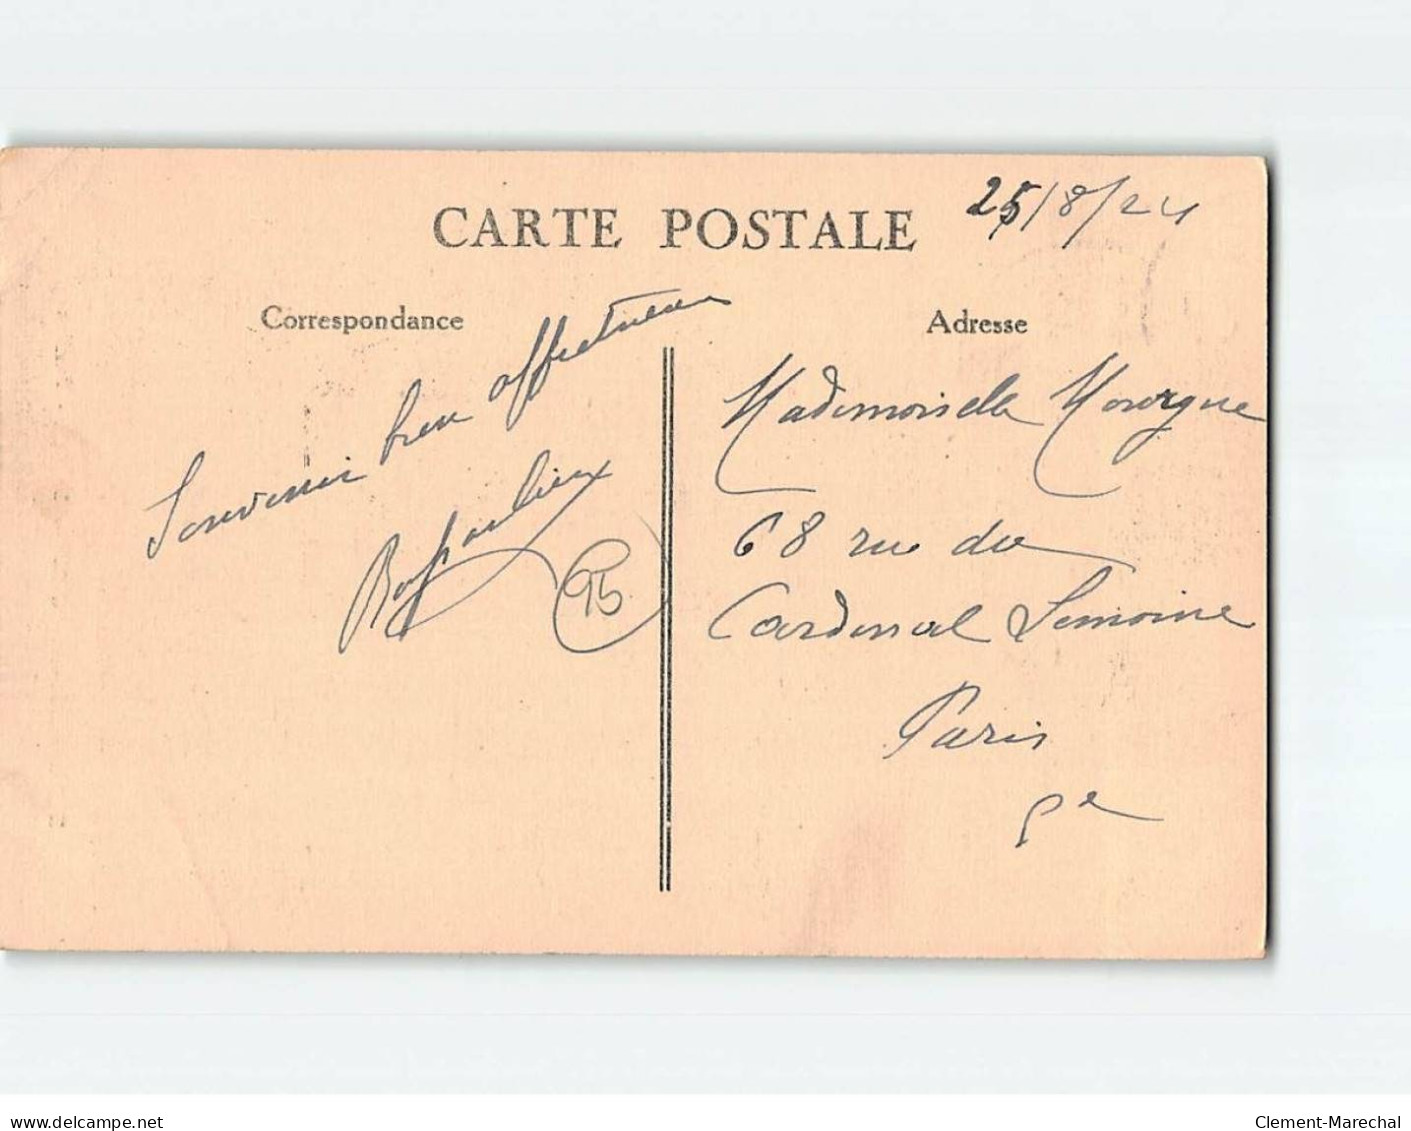 25/8/24
CARTE POSTALE
Correspondance
Adresse
Souvenir bien affectueux
95
Mademoiselle Mourgue
68 rue du
Cardinal Lemoine
Paris
5e
www.delcampe.net
Clement-Marechal